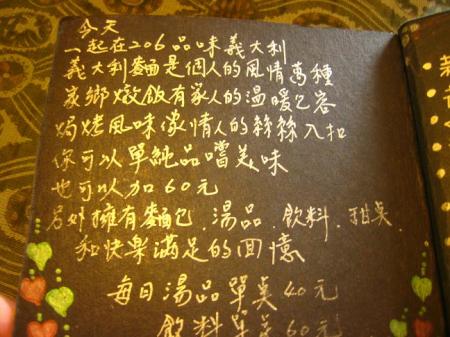 今天
一起在206品味義大利
義大利麵是個人的風情萬種
家鄉燉飯有家人的溫暖包容
焗烤風味像情人的絲絲入扣
你可以單純品嚐美味
也可以加60元
另外擁有麵包、湯品、飲料、甜點
和快樂滿足的回憶
每日湯品單點40元
飲料單點60元